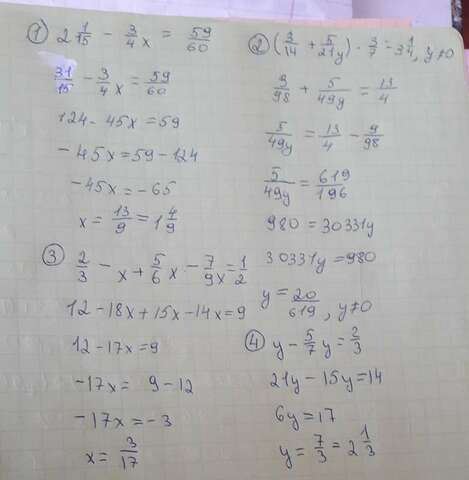 ① 2 1/15 - 3/4 x = 59/60
31/15 - 3/4 x = 59/60
124 - 45x = 59
- 45x = 59 - 124
- 45x = - 65
x = 13/9 = 1 4/9
② (3/14 + 5/21y) · 3/7 = 3 1/4, y≠0
9/98 + 5/49y = 13/4
5/49y = 13/4 - 9/98
5/49y = 619/196
980 = 30331y
30331y = 980
y = 20/619, y≠0
③ 2/3 - x + 5/6 x - 7/9 x = 1/2
12 - 18x + 15x - 14x = 9
12 - 17x = 9
- 17x = 9 - 12
- 17x = - 3
x = 3/17
④ y - 5/7 y = 2/3
21y - 15y = 14
6y = 17
y = 7/3 = 2 1/3